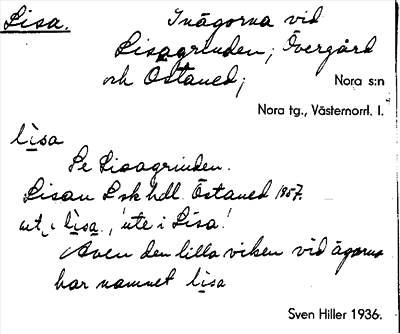 Lisa. Inägorna vid
Lisagrinden, Övergård
och Östaned;
Nora s:n
Nora tg., Västernorrl. l.
lisa
Se Lisagrinden.
Lisan Lsk hdl. Östaned 1957.
ut, i lisa, 'ute i Lisa'.
Även den lilla viken vid ägorna
har namnet lisa
Sven Hiller 1936.